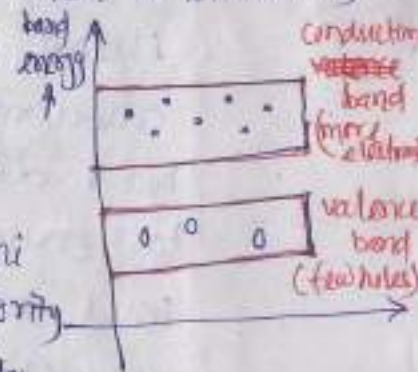 band
energy
conduction
valence
band
(more
electrons
valence
band
(few holes)
ni
ority